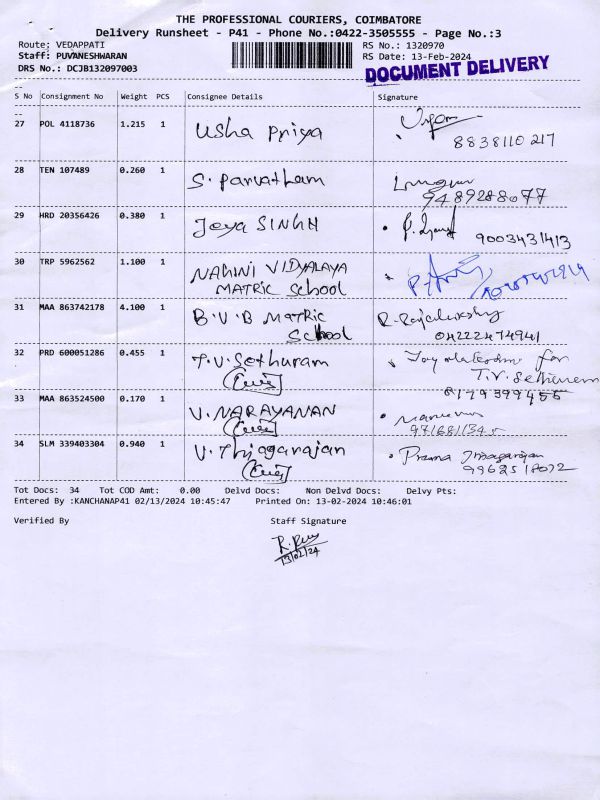 THE PROFESSIONAL COURIERS, COIMBATORE
Delivery Runsheet - P41 - Phone No.:0422-3505555 - Page No.:3
Route: VEDAPPATI RS No.: 1320970
Staff: PUVANESHWARAN RS Date: 13-Feb-2024
DRS No.: DCJB132097003 DOCUMENT DELIVERY
S No Consignment No Weight PCS Consignee Details Signature
27 POL 4118736 1.215 1 Usha Priya
8838110217
28 TEN 107489 0.260 1 S. Parvatham
9489288077
29 HRD 20356426 0.380 1 Jeya SINGH
9003431413
30 TRP 5962562 1.100 1 NAHINI VIDYALAYA
MATRIC School
31 MAA 863742178 4.100 1 B.V.B MATRIC R. Rajalakshmy
School 04222474941
32 PRD 600051286 0.455 1 T.V. Sethuram for
T.V. Sethuram
33 MAA 863524500 0.170 1 V. NARAYANAN
34 SLM 339403304 0.940 1 V. Thiagarajan Prema Thiagarajan
Tot Docs: 34 Tot COD Amt: 0.00 Delvd Docs: Non Delvd Docs: Delvy Pts:
Entered By :KANCHANAP41 02/13/2024 10:45:47 Printed On: 13-02-2024 10:46:01
Verified By Staff Signature
13/02/24